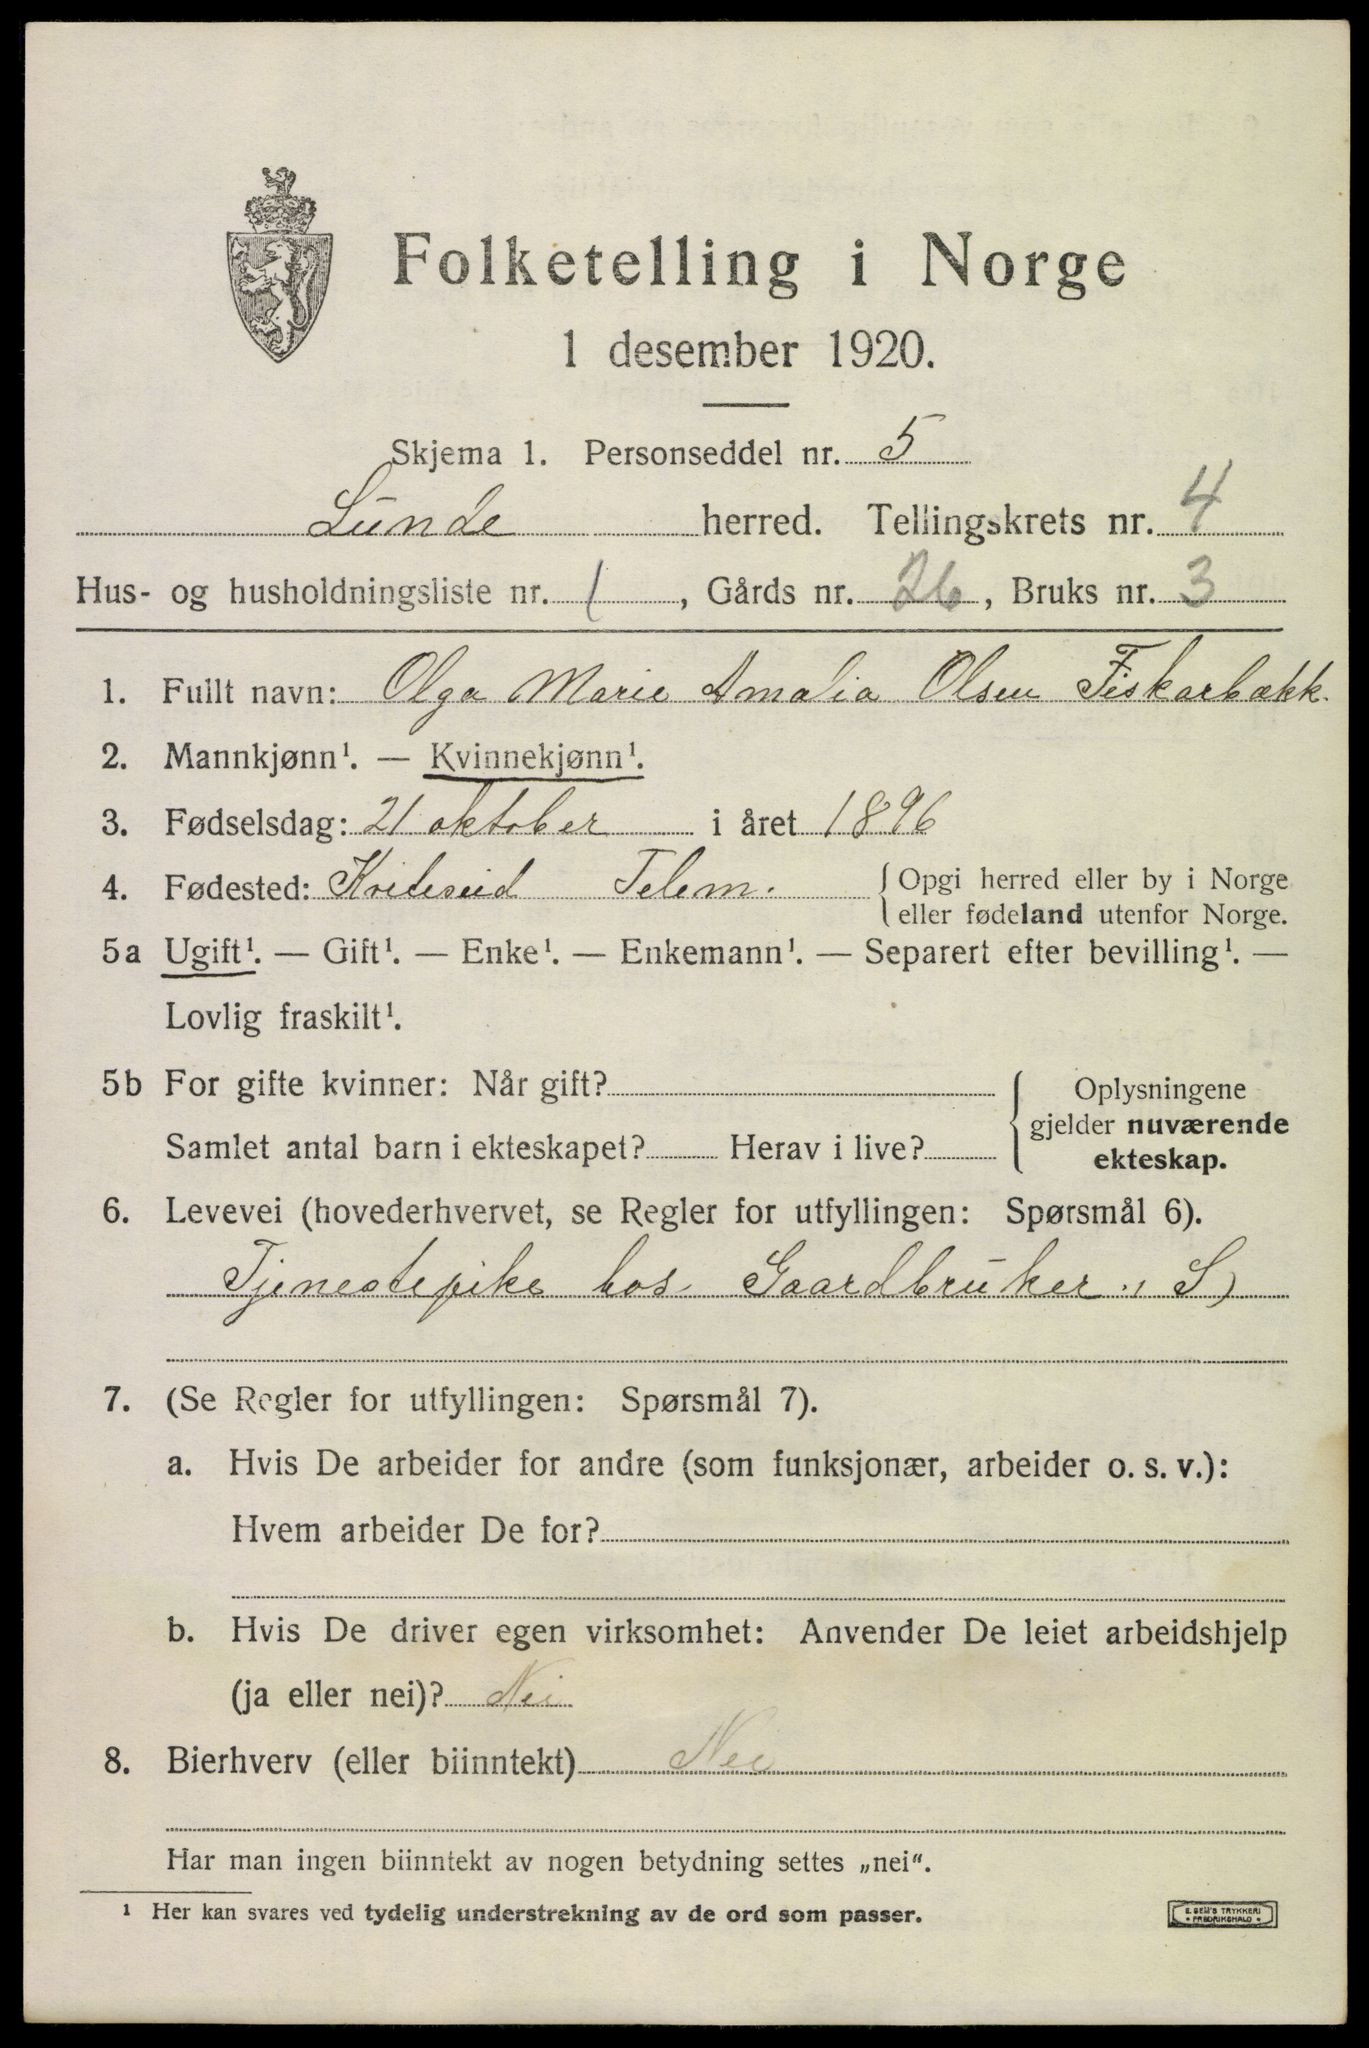 Folketelling i Norge
1 desember 1920.
Skjema 1. Personseddel nr. 5
Lunde herred. Tellingskrets nr. 4
Hus- og husholdningsliste nr. 1, Gårds nr. 26, Bruks nr. 3
1. Fullt navn: Olga Marie Amalia Olsen Fiskarbækk.
2. Mannkjønn¹. — Kvinnekjønn¹.
3. Fødselsdag: 21 oktober i året 1896
4. Fødested: Kviteseid Telem. { Opgi herred eller by i Norge
eller fødeland utenfor Norge.
5a Ugift¹. — Gift¹. — Enke¹. — Enkemann¹. — Separert efter bevilling¹. —
Lovlig fraskilt¹.
5b For gifte kvinner: Når gift?
Samlet antal barn i ekteskapet? Herav i live?
Oplysningene
gjelder nuværende
ekteskap.
6. Levevei (hovederhvervet, se Regler for utfyllingen: Spørsmål 6).
Tjenestepike hos Gaardbruker. S
7. (Se Regler for utfyllingen: Spørsmål 7).
a. Hvis De arbeider for andre (som funksjonær, arbeider o. s. v.):
Hvem arbeider De for?
b. Hvis De driver egen virksomhet: Anvender De leiet arbeidshjelp
(ja eller nei)? Nei
8. Bierhverv (eller biinntekt) Nei
Har man ingen biinntekt av nogen betydning settes „nei".
¹ Her kan svares ved tydelig understrekning av de ord som passer.
E. SEM'S TRYKKERI
• FREDRIKSHALD •